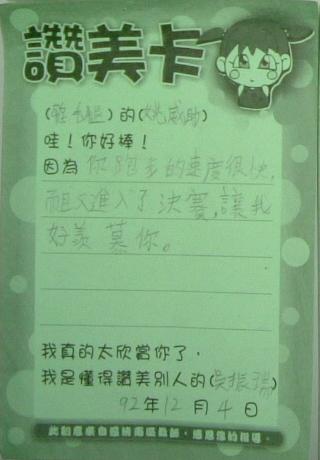 讚美卡
( )的(姚威助)
哇！你好棒！
因為你跑步的速度很快,
而且又進入了決賽,讓我
好羨慕你。
我真的太欣賞你了，
我是懂得讚美別人的(吳振瑞)
92年12月4日